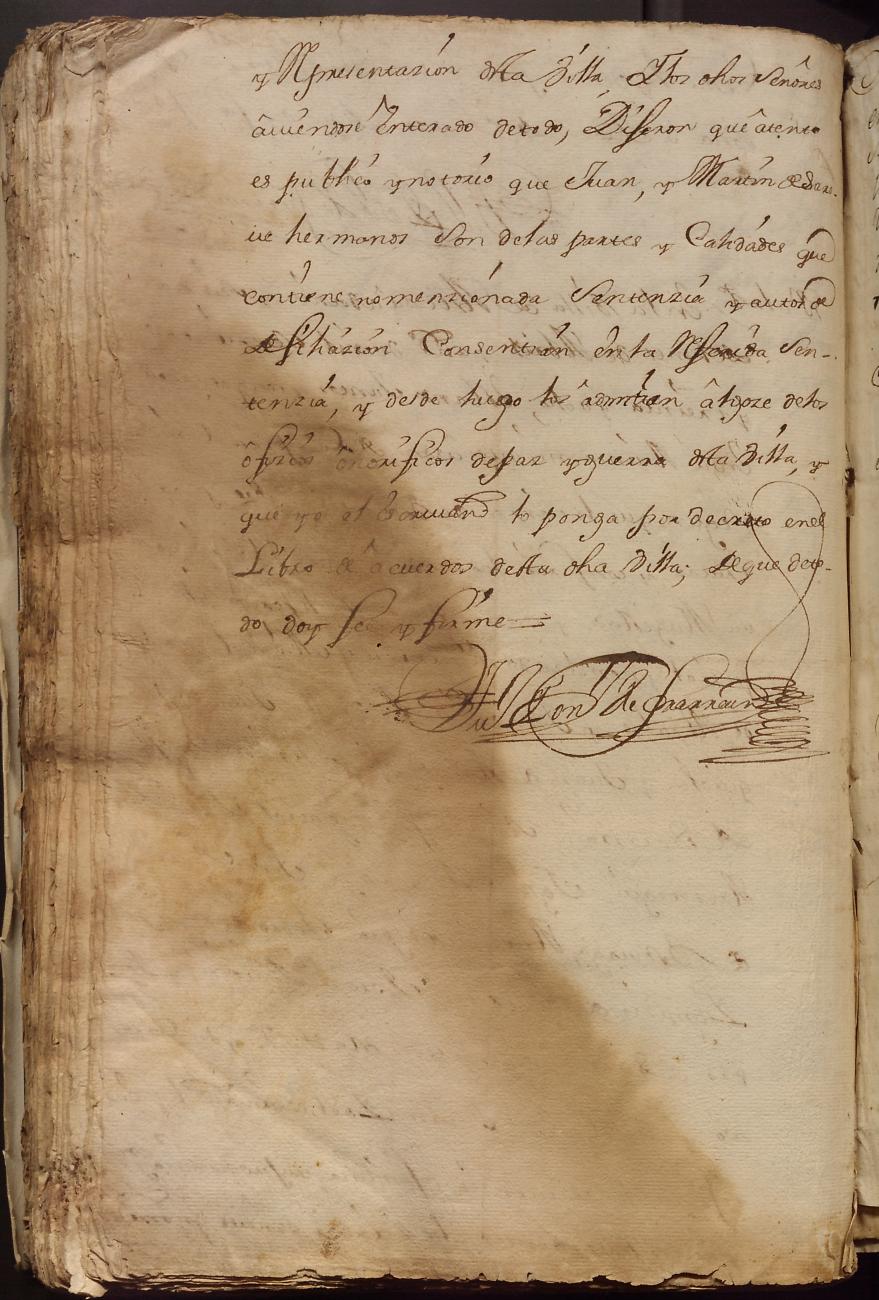 y Representazión desta Villa, Y los dhos Señores
âuiendose Ynterado detodo, Dixeron que âtento
es publico y notorio que Juan, y Martin de
ue hermanos son delas partes y Calidades que
contiene nomenzionada Sentenzia y autos de
filiázion Consentian en la Referida Sen-
tenzia, y desde luego los âdmitian âlgoze delos
ôfizios onorificos depaz y guerra desta Villa, y
que yo el Escriuano lo ponga por decreto enel
Libro de âcuerdos desta dha Villa; de que deto-
do doy fee y firme =